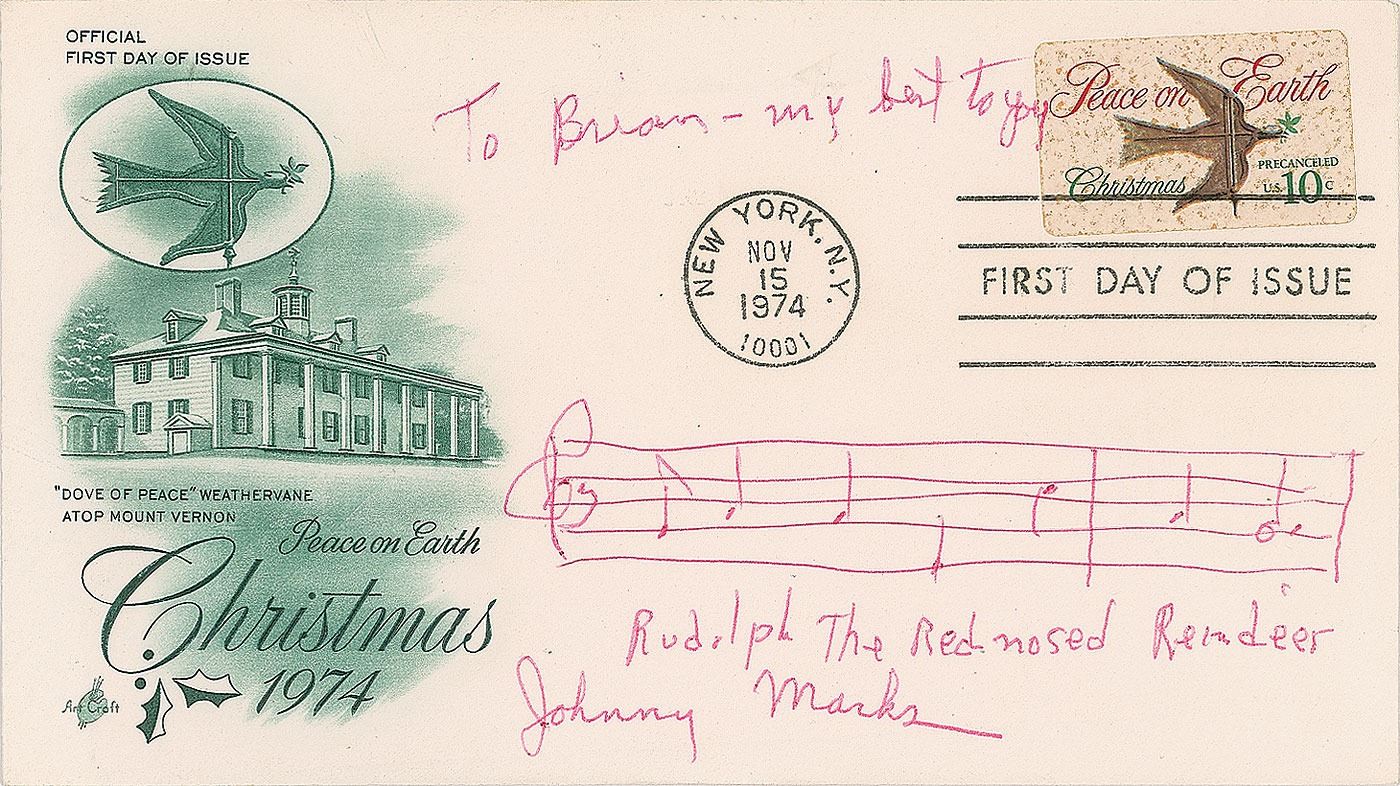 OFFICIAL
FIRST DAY OF ISSUE
To Brian - my best to you
Peace on Earth
Christmas
PRECANCELED
U.S. 10c
NEW YORK, N.Y.
NOV
15
1974
10001
FIRST DAY OF ISSUE
"DOVE OF PEACE" WEATHERVANE
ATOP MOUNT VERNON
Peace on Earth
Christmas
1974
Art Craft
Rudolph The Red-nosed Reindeer
Johnny Marks